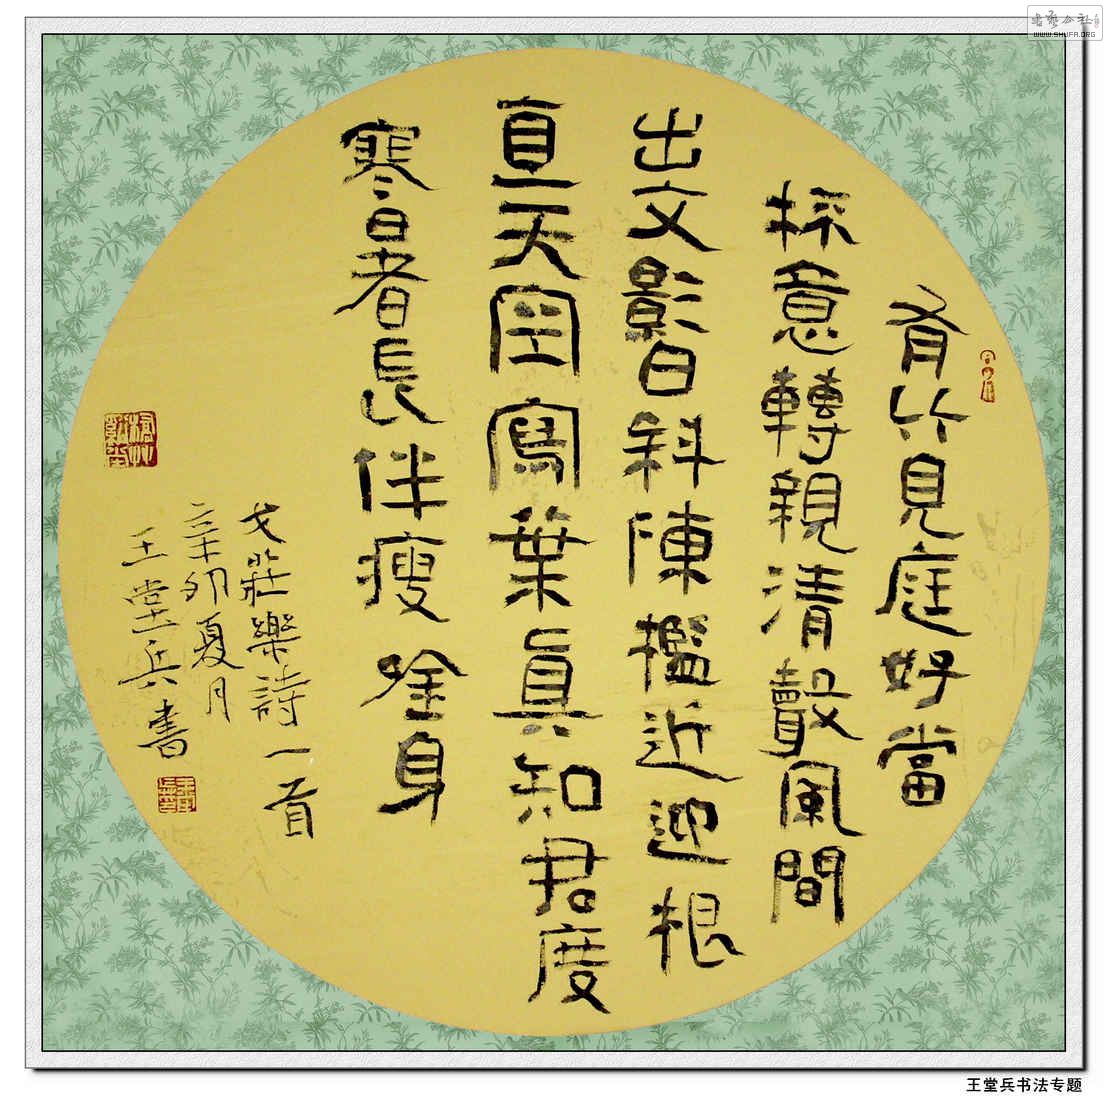 肴竹見庭好當
採意轉親清聲風間
出文影日斜陳檻近迎根
直天空寫葉真知君度
寒暑長伴瘦唫身
戈莊樂詩一首
辛卯夏月
王堂兵書
王堂兵书法专题
書藝公社
WWW.SHUFA.ORG